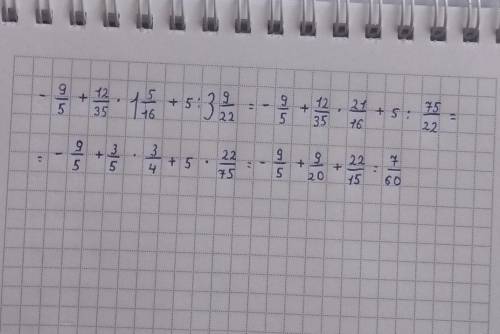 - 9/5 + 12/35 · 1 5/16 + 5 : 3 9/22 = - 9/5 + 12/35 · 21/16 + 5 : 75/22 =
= - 9/5 + 3/5 · 3/4 + 5 · 22/75 = - 9/5 + 9/20 + 22/15 = 7/60